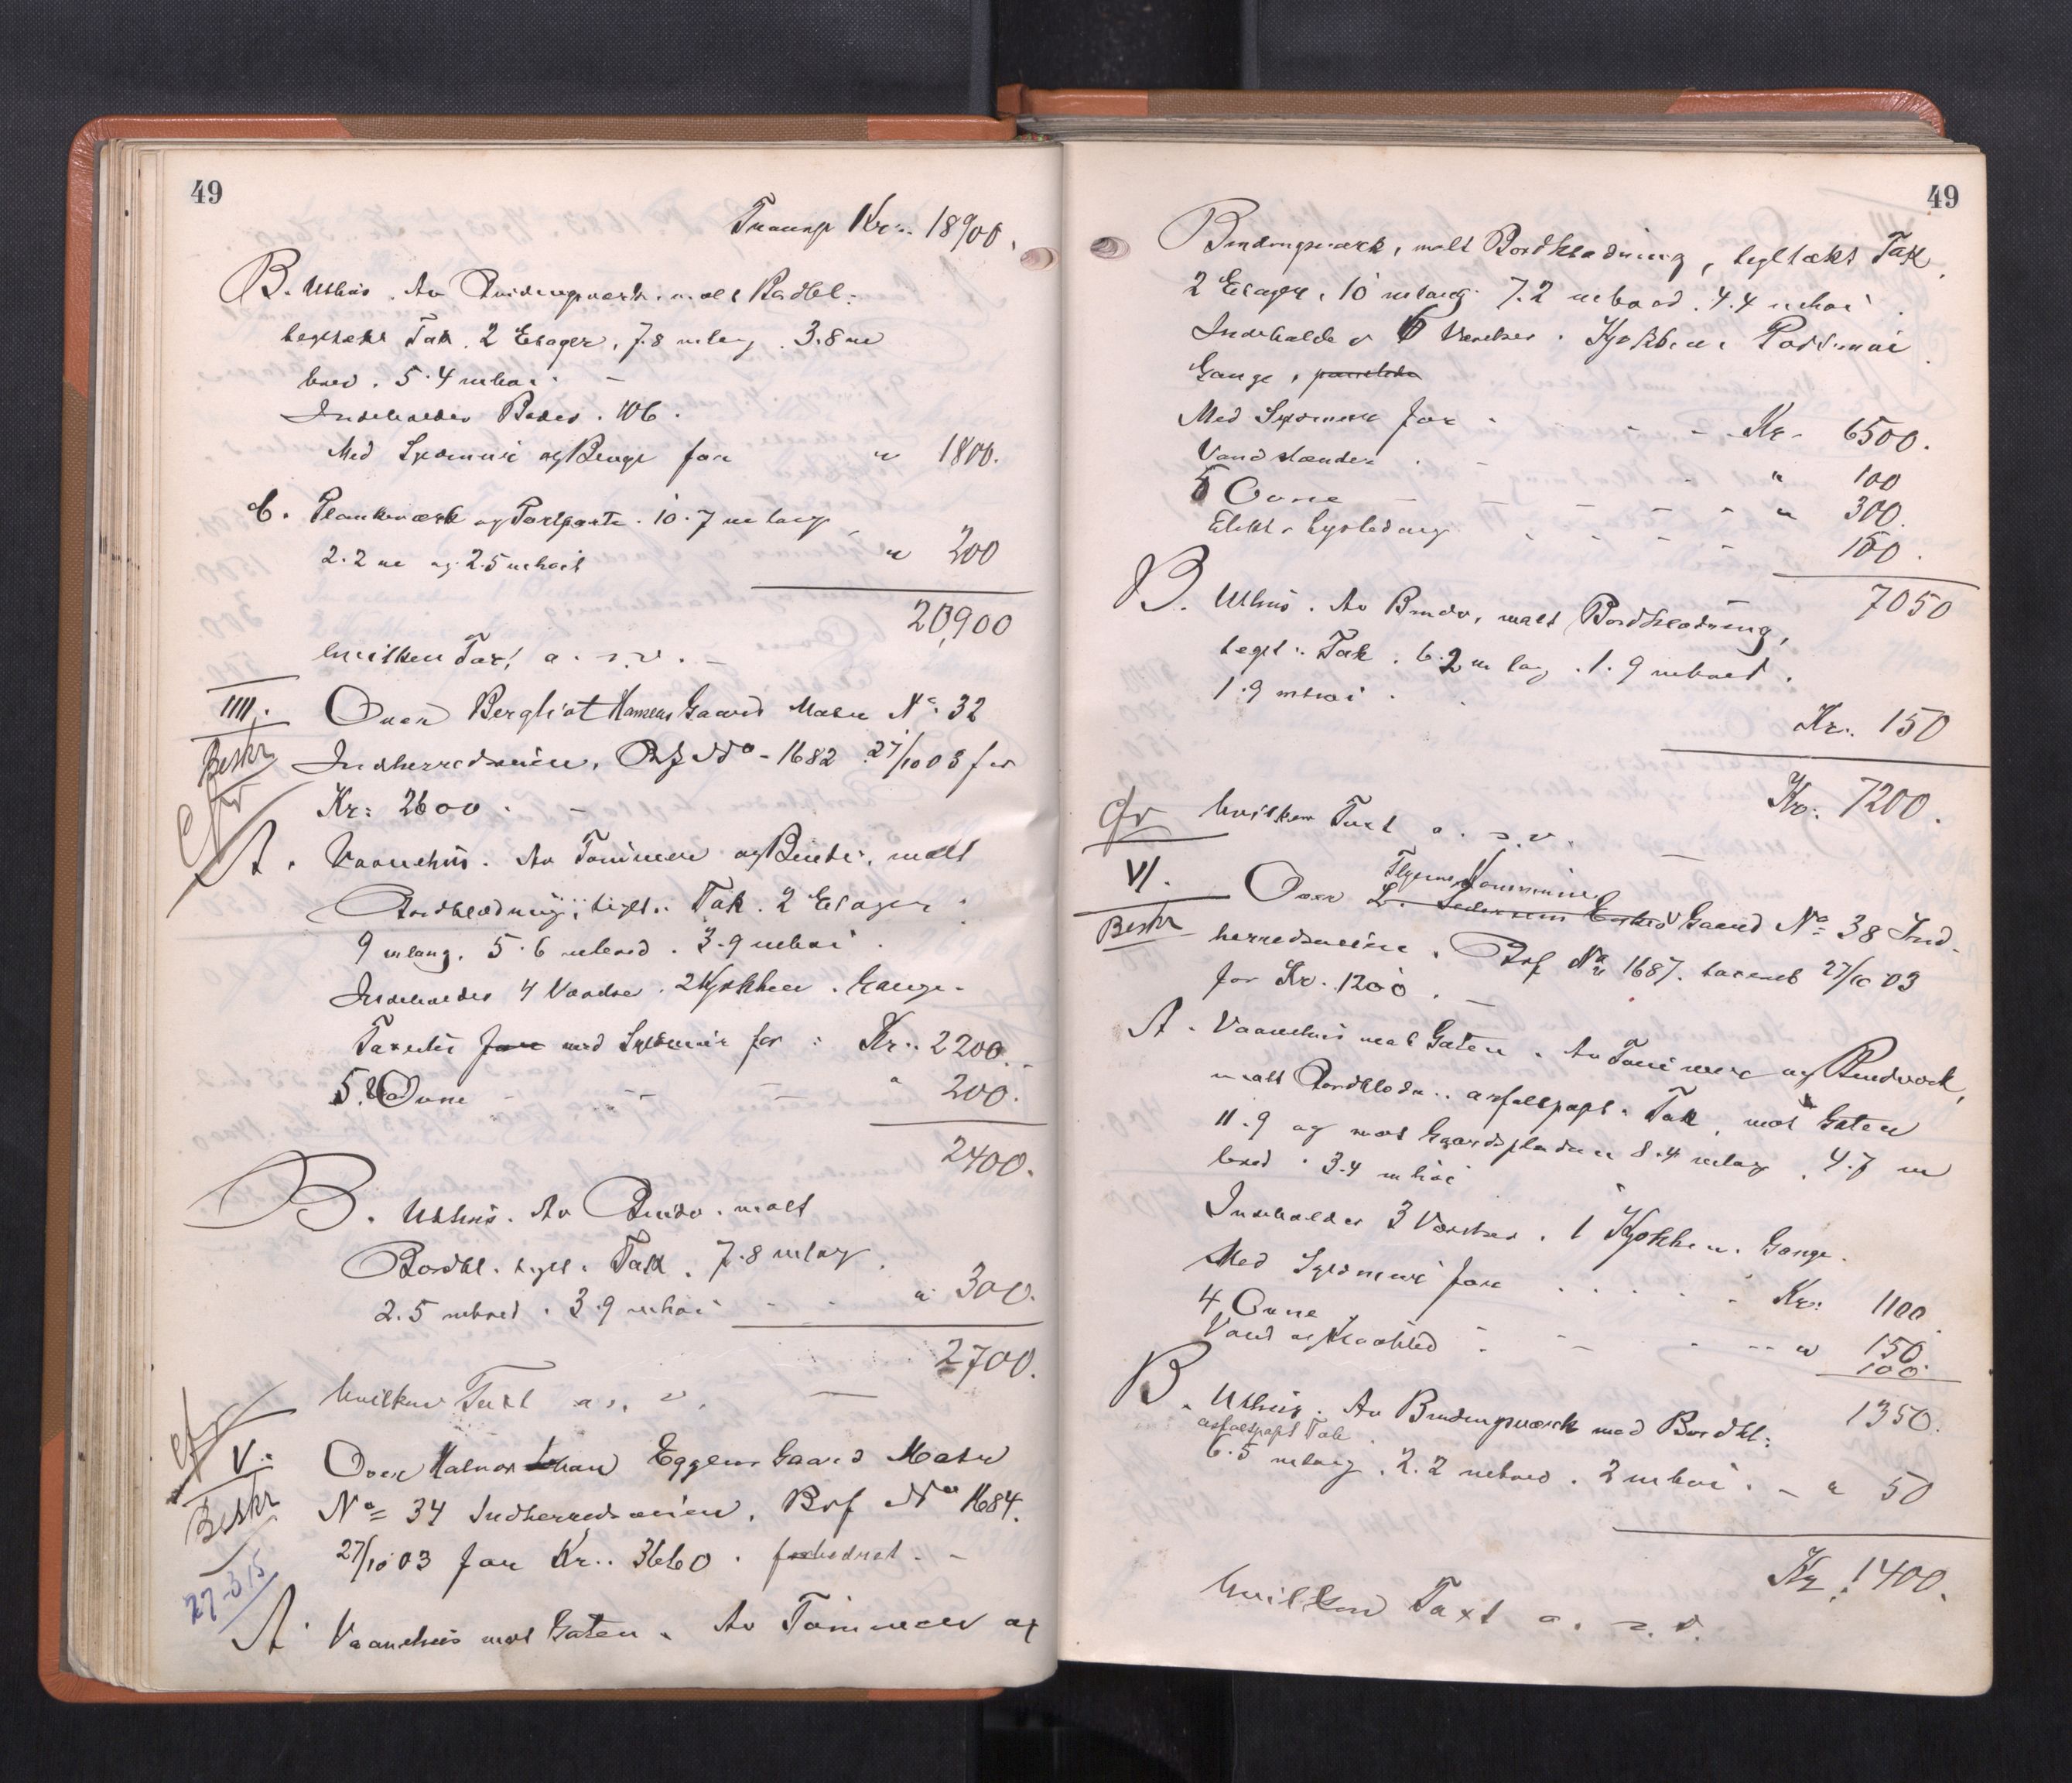 49
Transp Kr: 18900.
B. Uthus. Av Bindingsværk. malt Bordkl:
teglhækt Tak. 2 Etager, 7.8 m lang. 3.8 m
bred. 5.4 m høi. –
Indeholder Boder. Wc.
Med Grundmur og Penge for " 1800.
C. Plankeværk og Portporte. 10.7 m lang
2.2 m og 2.5 m høit " 200
20,900
hvilken Taxt a. s. v. –
IIII.
Over Bergliot Hansens Gaard Matr No 32
Beskr
Indherredsveien, Brf No - 1682 27/10 03 for
Cfr
Kr: 2600. –
A. Vaanehus. Av Tømmer og Bindv, malt
Bordklædning, tegl. Tak. 2 Etager.
9 m lang. 5.6 m bred. 3.9 m høi.
Indeholder 4 Værelser. 2 Kjøkken. Gange.
Taxeres for med Grundmur for : Kr. 2200.
5 Ovne – – – " 200.
2400.
B. Uthus. Av Bindv. malt
Bordkl. tegl. Tak. 7.8 m lang.
2.5 m bred. 3.9 m høi – - " 300.
2700.
hvilken Taxt a. s. v. —
cfr
V.
Over Halvor Eggens Gaard Matr
Beskr
No 34 Indherredsveien, Brf No 1684.
27/10 03 for Kr.. 3660. forbedret. –
27-3 15
A. Vaanehus mot Gaten. Av Tømmer og
49
Bindingsværk, malt Bordklædning, tegltækt Tak,
2 Etager, 10 m lang. 7.2 m bred. 4.4 m høi.
Indeholder 6 Værelser. Kjøkken.
Gange,
Med Grundmur for - - - Kr. 6500.
Vand - " 100
5 Ovne – – – " 300.
Elektr. Lysledning - - - 150.
7050
B. Uthus. Av Bindv, malt Bordklædning,
tegl. Tak. 6.2 m lang. 1.9 m bred.
1.9 m høi.
Kr. 150
Kr: 7200.
Cfr
hvilken Taxt a. s. v. —
VI.
Kommune
Over L. Enkes Gaard No 38 Ind-
Beskr
herredsveien. Brf No 1687. taxeret 27/10 03
for Kr. 1200. –
A. Vaanehus mot Gaten. Av Tømmer og Bindverk,
malt Bordklædn.. asfaltpapt. Tak, mot Gaten
11.9 og mot Gaardspladsen 8.4 m lang. 4.7 m
bred. 3.4 m høi
Indeholder 3 Værelser. 1 Kjøkken. Gange.
Med Grundmur for . . . . Kr: 1100.
4 Ovne
Vand og Kloakled - - - " 150
100
1350.
B. Uthus. Av Bindingsværk med Bordkl:
asfaltpapt Tak
6.5 m lang. 2.2 m bred. 2 m høi. – " 50
Kr. 1400.
hvilken Taxt a. s. v.